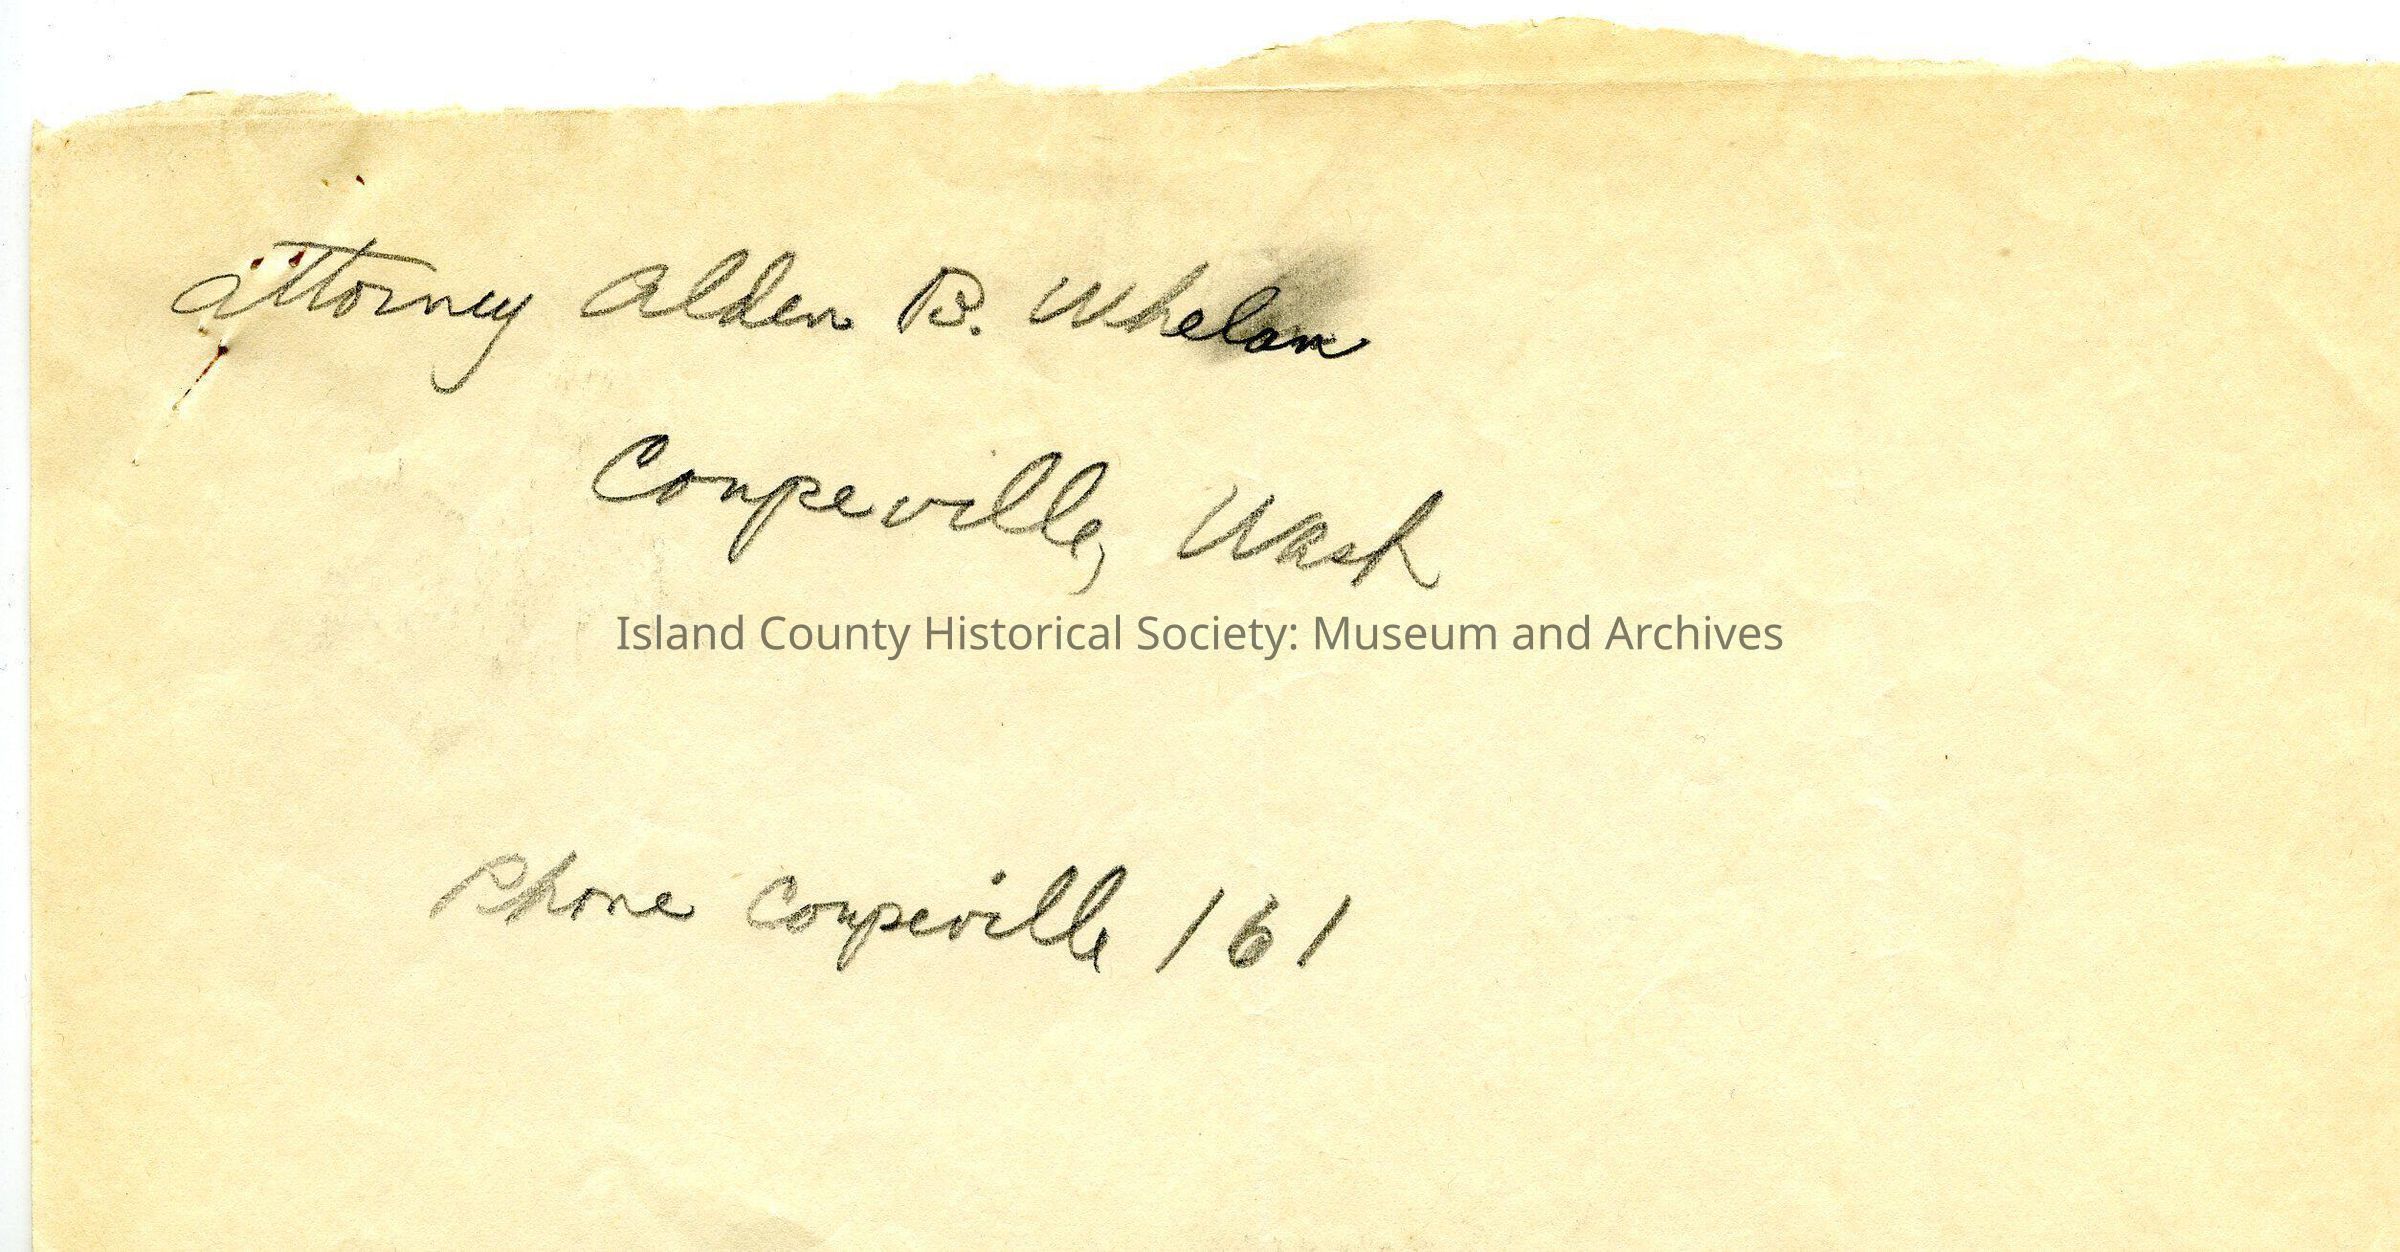 Attorney Alden B. Whelan
Coupeville, Wash
Island County Historical Society: Museum and Archives
Phone Coupeville 161